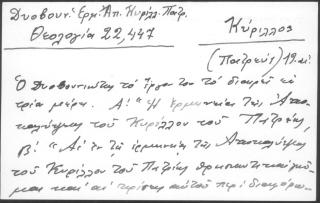 Δυοβουν. Ἑρμ. Ἀπ. Κυρίλλ. Πατρ.
Θεολογία 22,447
Κύριλλος
(Πατρεύς) 12 αἰ.
Ὁ Δυοβουνιώτης τὸ ἔργον του τὸ διαιρεῖ εἰς
τρία μέρη. Α! "Ἡ ἑρμηνεία τῆς Ἀπο-
καλύψεως τοῦ Κυρίλλου τοῦ Πατρέως,
β! "Αἱ ἐν τῇ ἑρμηνείᾳ τῆς Ἀποκαλύψεως
τοῦ Κυρίλλου τοῦ Πατρέως
καὶ αἱ κρίσεις αὐτοῦ περὶ διαφόρων